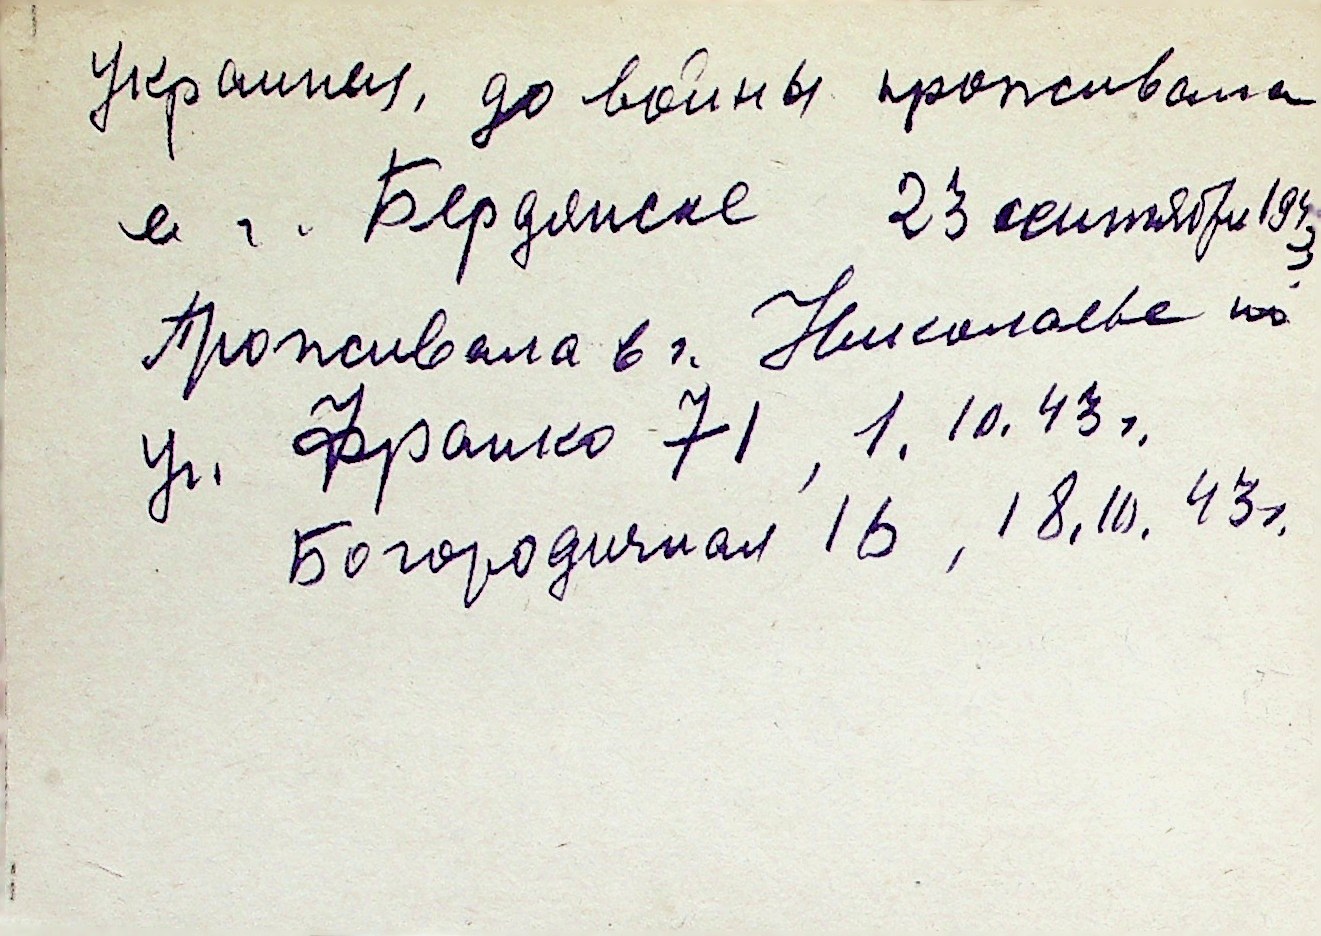 Украинка, до войны проживала
в г. Бердянске 23 сентября 1943
Проживала в г. Николаеве по
ул. Франко 71, 1.10.43 г.
Богородичная 16, 18.10.43 г.